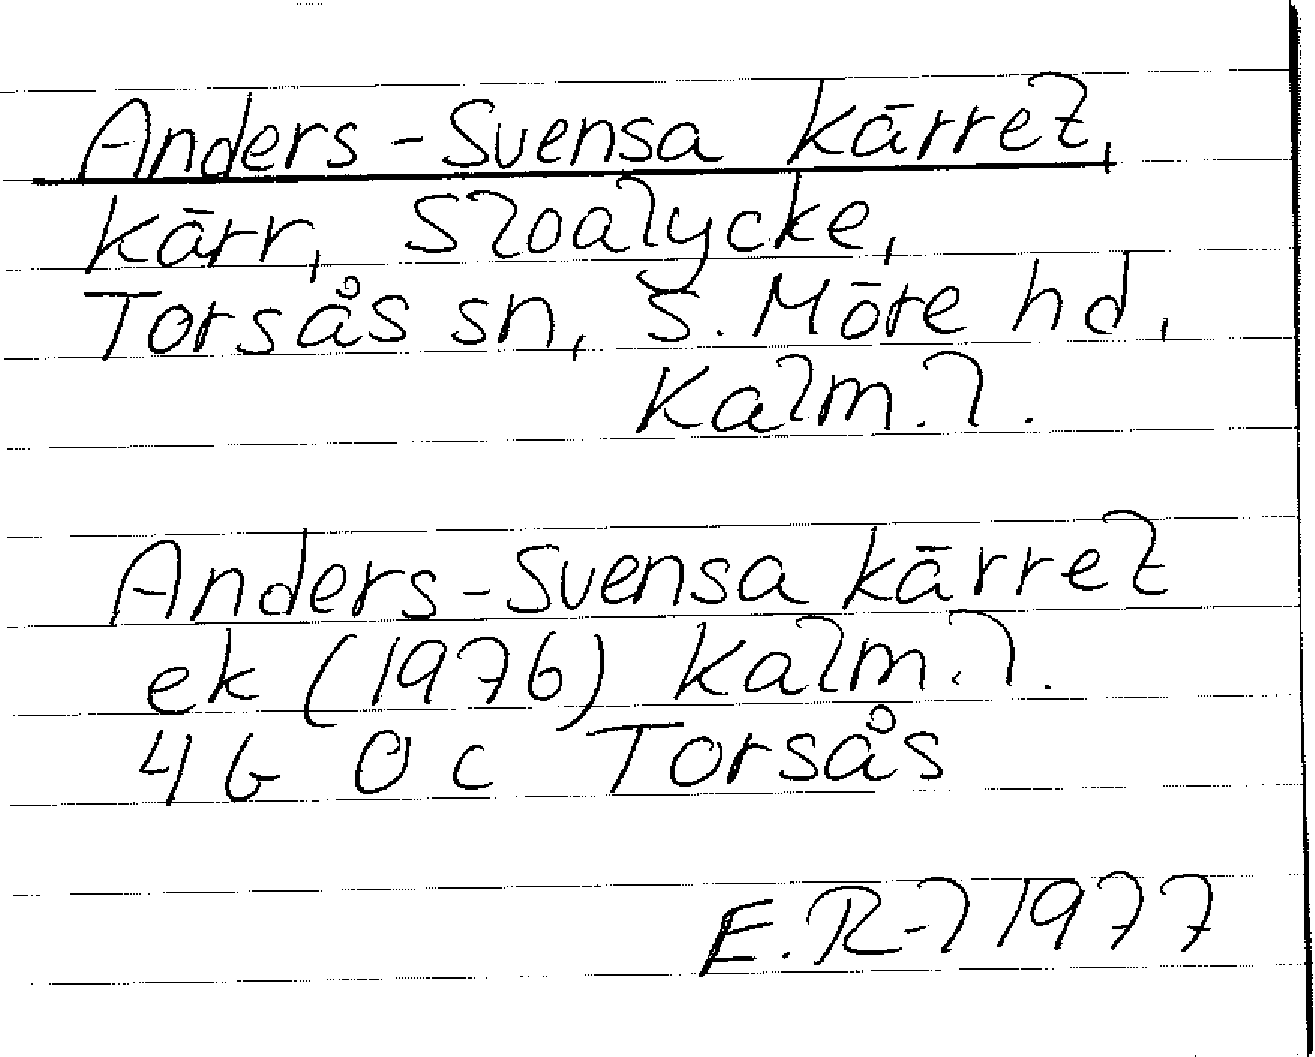 Anders-Svensa kärret,
kärr, Sloalycke,
Torsås sn, S. Möre hd,
Kalm. l.
Anders-Svensa kärret
ek (1976) Kalm. l.
4G 0c Torsås
E. R-l 1977